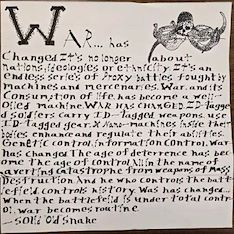 WAR... has
Changed. It's no longer about
nations, ideologies or ethnicity. It's an
endless series of Proxy battles fought by
machines and mercenaries. War, and its
Consumption of life has become a well-
oiled machine. WAR HAS CHANGED. ID-tagged
soldiers carry I.D-tagged weapons use
I.D-tagged gear. Nano-machines inside their
bodies enhance and regulate their abilities.
Genetic control. information Control. War
has changed. The age of deterrence has bec-
ome the age of control. All in the name of
averting Catastrophe from weapons of Mass
Destruction. And he who controls the batt-
lefield controls history. War has changed...
when the battlefield is under total contr-
ol. war becomes routine.
-Solid Old Snake